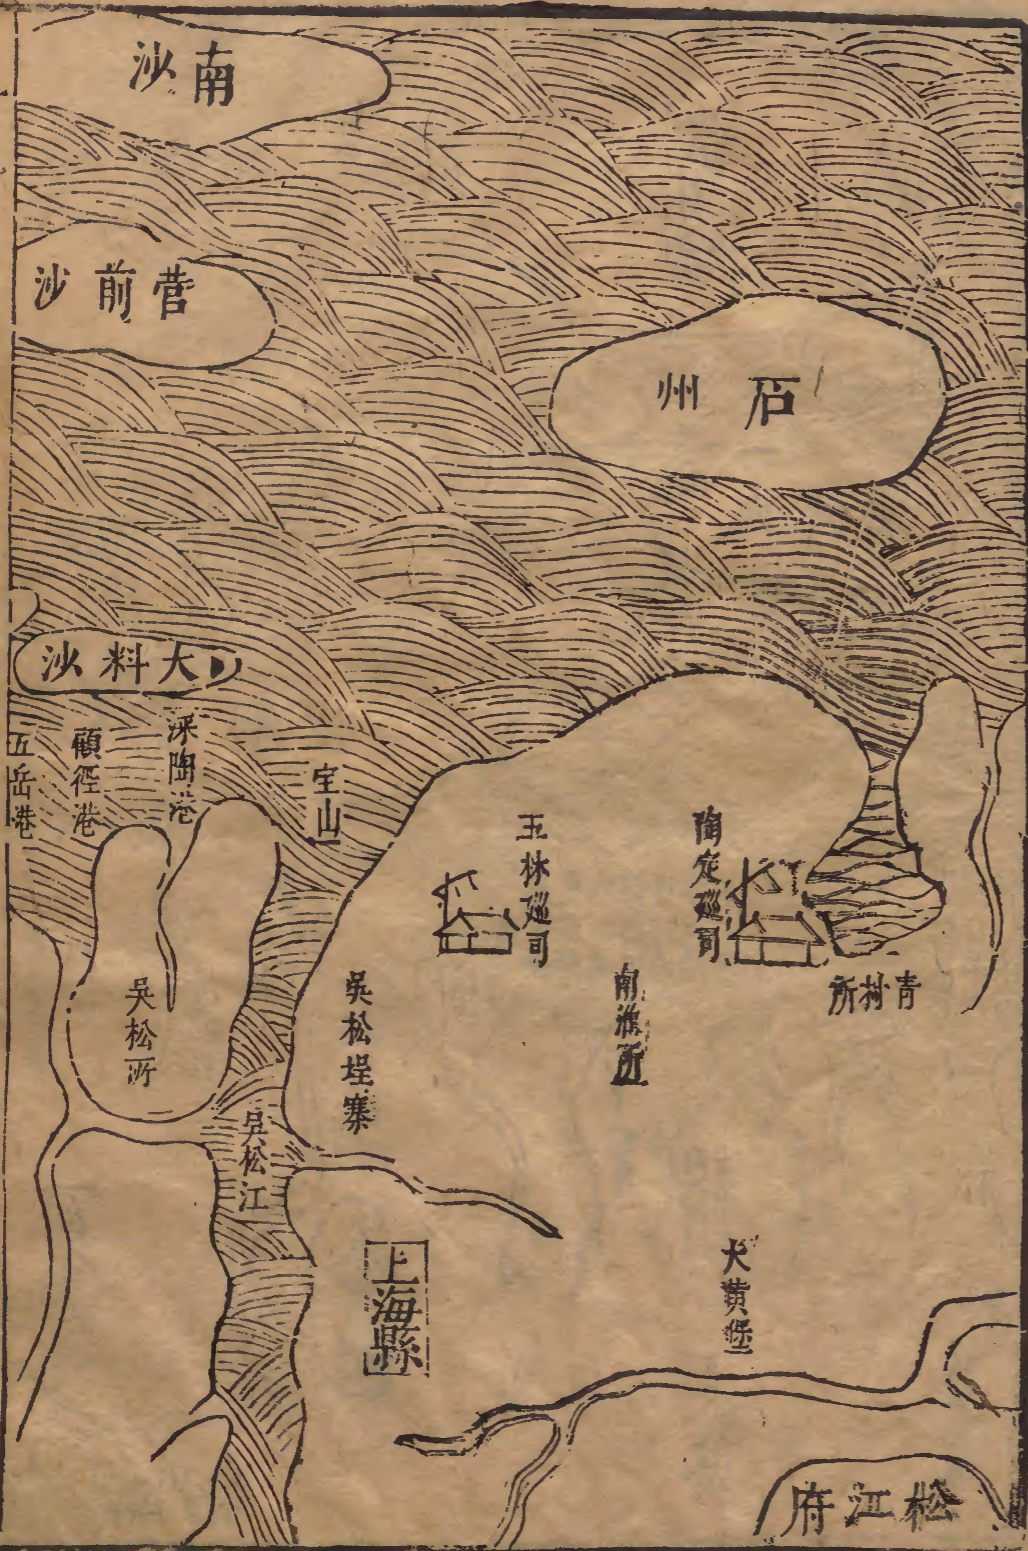 南沙
營前沙
石州
大料沙
五岳港
顧徑港
深陶港
宝山
玉林巡司
陶定巡司
青村所
南滙所
吳松所
吳松埕寨
吳松江
上海縣
犬黄堡
松江府